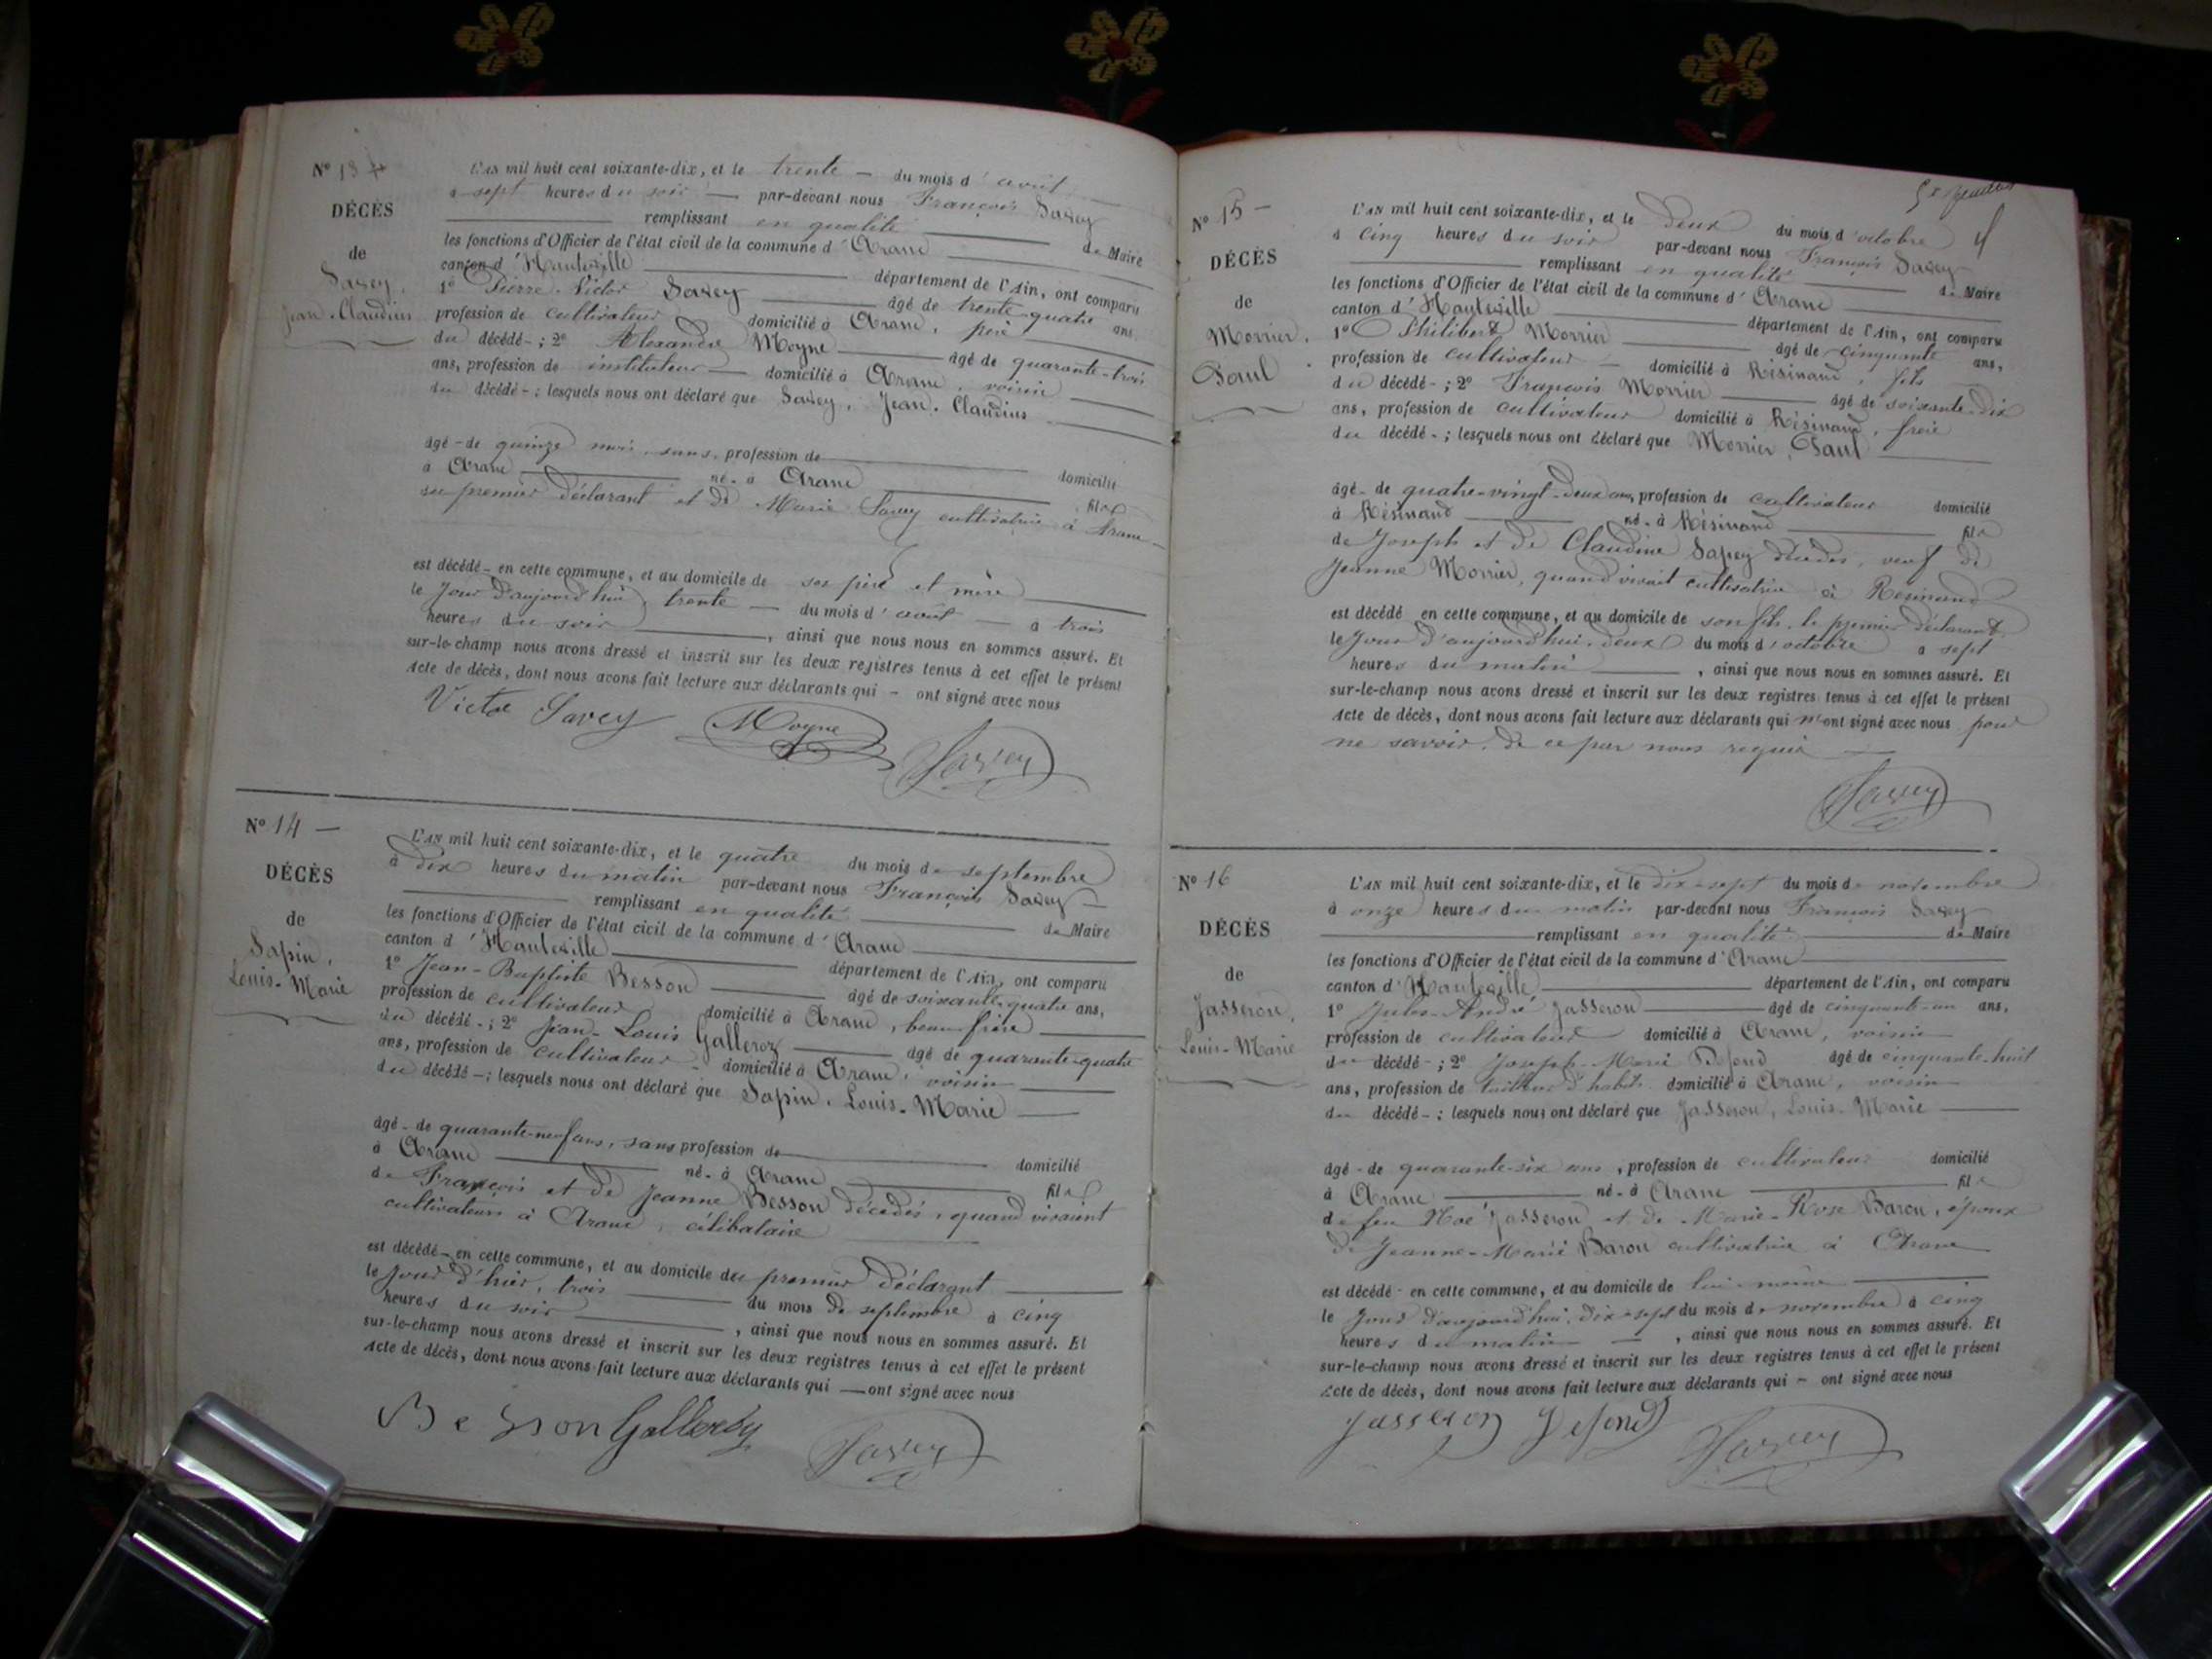 N° 13
DÉCÈS
de
Savey,
Jean-Claudius
L'AN mil huit cent soixante-dix, et le trente — du mois d'août
à sept heures du soir — par-devant nous François Savey
remplissant en qualité de Maire
les fonctions d'Officier de l'état civil de la commune d'Aranc
canton d'Hauteville département de l'Ain, ont comparu
1° Pierre-Victor Savey âgé de trente-quatre ans,
profession de cultivateur domicilié à Aranc, père
du décédé-; 2° Alexandre Moyne âgé de quarante-trois
ans, profession de instituteur — domicilié à Aranc, voisin
du décédé-; lesquels nous ont déclaré que Savey, Jean-Claudius
âgé-de quinze mois, sans, profession de domicilié
à Aranc né-à Aranc fils
du premier déclarant et de Marie Savey cultivatrice à Aranc
est décédé-en cette commune, et au domicile de ses père et mère
le Jour d'aujourd'hui, trente — du mois d'août — à trois
heures du soir, ainsi que nous nous en sommes assuré. Et
sur-le-champ nous avons dressé et inscrit sur les deux registres tenus à cet effet le présent
Acte de décès, dont nous avons fait lecture aux déclarants qui - ont signé avec nous
Victor Savey Moyne Savey
N° 14 —
DÉCÈS
de
Sapin,
Louis-Marie
L'AN mil huit cent soixante-dix, et le quatre du mois de septembre
à dix heures du matin par-devant nous François Savey —
remplissant en qualité de Maire
les fonctions d'Officier de l'état civil de la commune d'Aranc
canton d'Hauteville département de l'Ain, ont comparu
1° Jean-Baptiste Besson âgé de soixante-quatre ans,
profession de cultivateur domicilié à Aranc, beau-frère
du décédé-; 2° Jean-Louis Galleroz âgé de quarante-quatre
ans, profession de cultivateur - domicilié à Aranc, voisin
du décédé-; lesquels nous ont déclaré que Sapin, Louis-Marie
âgé-de quarante-neuf ans, sans profession de domicilié
à Aranc né-à Aranc fils
de François et de Jeanne Besson décédés, quand vivaient
cultivateurs à Aranc, célibataire
est décédé-en cette commune, et au domicile du premier déclarant
le Jour d'hier, trois du mois de septembre à cinq
heures du soir, ainsi que nous nous en sommes assuré. Et
sur-le-champ nous avons dressé et inscrit sur les deux registres tenus à cet effet le présent
Acte de décès, dont nous avons fait lecture aux déclarants qui — ont signé avec nous
Besson Savey
N° 15 —
DÉCÈS
de
Morrier,
Paul
L'AN mil huit cent soixante-dix, et le deux du mois d'octobre
à cinq heures du soir par-devant nous François Savey
remplissant en qualité de Maire
les fonctions d'Officier de l'état civil de la commune d'Aranc
canton d'Hauteville département de l'Ain, ont comparu
1° Philibert Morrier âgé de cinquante ans,
profession de cultivateur — domicilié à Résinand, fils
du décédé-; 2° François Morrier âgé de soixante-dix
ans, profession de cultivateur domicilié à Résinand, frère
du décédé-; lesquels nous ont déclaré que Morrier, Paul
âgé-de quatre-vingt-deux ans, profession de cultivateur domicilié
à Résinand né-à Résinand fils
de Joseph et de Claudine Sapey décédés, veuf de
Jeanne Morrier, quand vivait cultivatrice à Résinand
est décédé en cette commune, et au domicile de son fils, le premier déclarant
le Jour d'aujourd'hui, deux du mois d'octobre à sept
heures du matin, ainsi que nous nous en sommes assuré. Et
sur-le-champ nous avons dressé et inscrit sur les deux registres tenus à cet effet le présent
Acte de décès, dont nous avons fait lecture aux déclarants qui n'ont signé avec nous pour
ne savoir, de ce par nous requis —
Savey
N° 16
DÉCÈS
de
Jasseron,
Louis-Marie
L'AN mil huit cent soixante-dix, et le dix-sept du mois de novembre
à onze heures du matin par-devant nous François Savey
remplissant en qualité de Maire
les fonctions d'Officier de l'état civil de la commune d'Aranc
canton d'Hauteville département de l'Ain, ont comparu
1° Jules-André Jasseron âgé de cinquante-un ans,
profession de cultivateur domicilié à Aranc, voisin
du décédé-; 2° Joseph-Marie Defond âgé de cinquante-huit
ans, profession de tailleur d'habits domicilié à Aranc, voisin
du décédé-; lesquels nous ont déclaré que Jasseron, Louis-Marie
âgé-de quarante-six ans, profession de cultivateur domicilié
à Aranc né-à Aranc fils
de feu Noé Jasseron et de Marie-Rose Baron, époux
de Jeanne-Marie Baron cultivatrice à Aranc
est décédé-en cette commune, et au domicile de lui-même
le Jour d'aujourd'hui, dix-sept du mois de novembre à cinq
heures du matin —, ainsi que nous nous en sommes assuré. Et
sur-le-champ nous avons dressé et inscrit sur les deux registres tenus à cet effet le présent
Acte de décès, dont nous avons fait lecture aux déclarants qui - ont signé avec nous
Jasseron Defond Savey